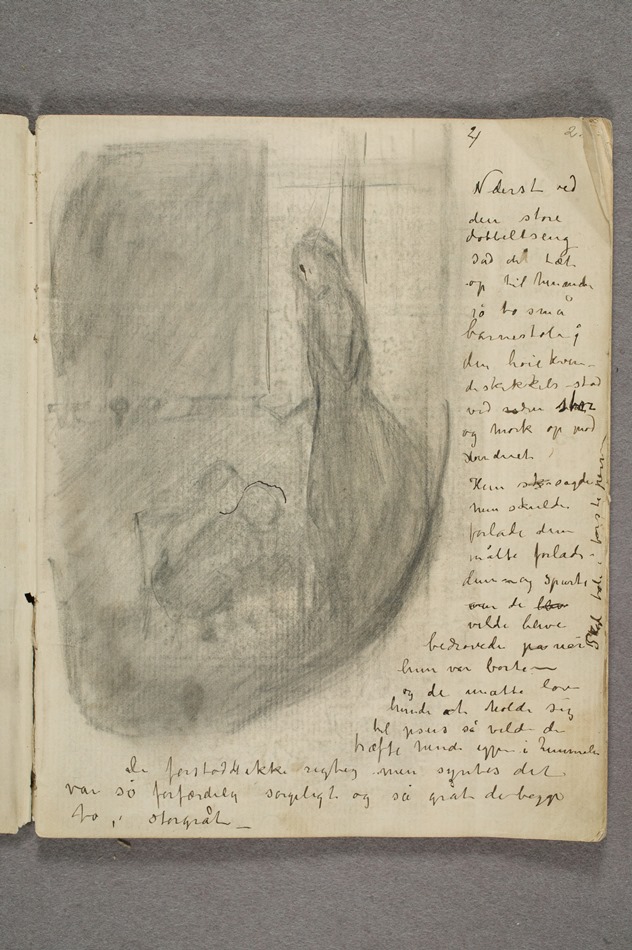 4
2.
Nederst ved
den store
dobbeltseng
sad de tæt
op til hinande
på to små
barnestole;
den høie kvin-
deskikkels stod
ved siden stor
og mørk op mod
vinduet.
Hun sagde
hun skulde
forlade dem
måtte forlade
dem og spurte
om de
vilde blive
bedrøvede når
hun var borte
og de måtte love
hende at holde sig
til jesus så vilde de
træffe hende igjen i himmelen
De forstod ikke rigtig men syntes det
var så forfærdelig sørgeligt og så gråt de begge
to, storgråt